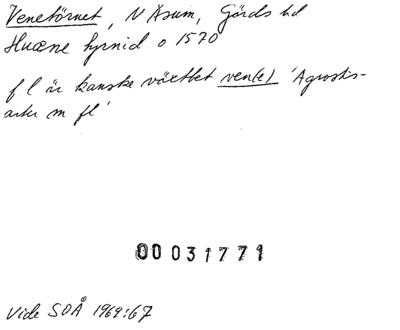 Venetörnet, N Åsum, Gärds hd
Huæne hyrnid o 1570
f l är kanske växtbet ven(e) 'Agrostis-
arter m fl'
00031771
Vide SOÅ 1969:67